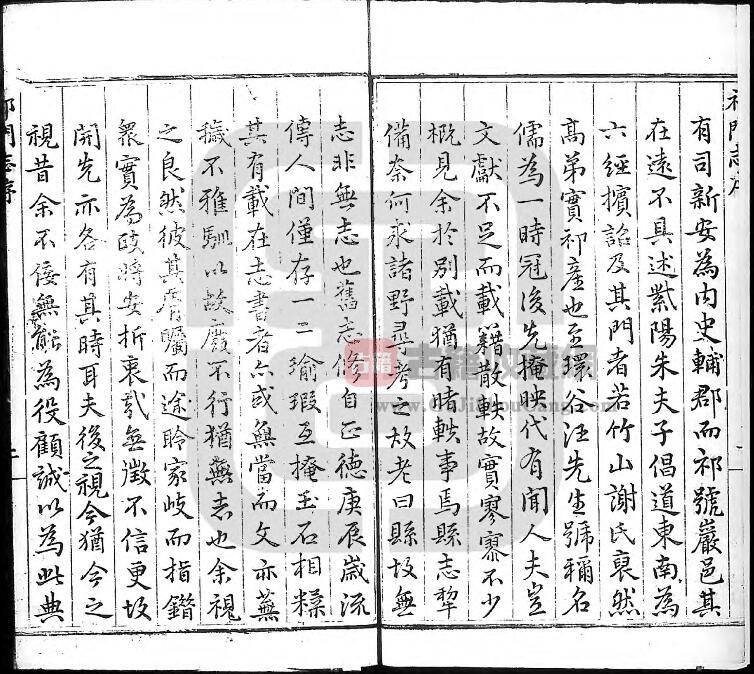 祁門志序
有司新安為內史輔郡而祁號巖邑其
在遠不具述紫陽朱夫子倡道東南為
六經擯詒及其門者若竹山謝氏裒然
高弟實祁產也至環谷汪先生號稱名
儒為一時冠後先掩映代有聞人夫豈
文獻不足而載籍散軼故實寥寥不少
概見余於別載猶有睹軼事焉縣志犂
備柰何求諸野尋考之故老曰縣故無
志非無志也舊志修自正德庚辰歲流
傳人間僅存一二瑜瑕互掩玉石相糅
其有載在志書者亦或無當而文亦蕪
穢不雅馴以故廢不行猶無志也余視
之良然彼其膚矚而途聆家岐而指鐕
眾實為政將安折衷哉無徵不信更故
開先亦各有其時耳夫後之視今猶今之
視昔余不佞無能為役顧誠以為此典
祁門志序
二
古籍收藏網
www.GuJiShouCang.com